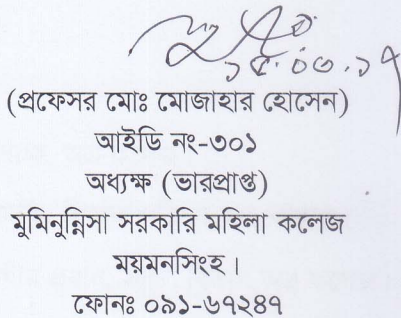 ১৫.০৩.১৭
(প্রফেসর মোঃ মোজাহার হোসেন)
আইডি নং-৩০১
অধ্যক্ষ (ভারপ্রাপ্ত)
মুমিনুন্নিসা সরকারি মহিলা কলেজ
ময়মনসিংহ।
ফোনঃ ০৯১-৬৭২৪৭